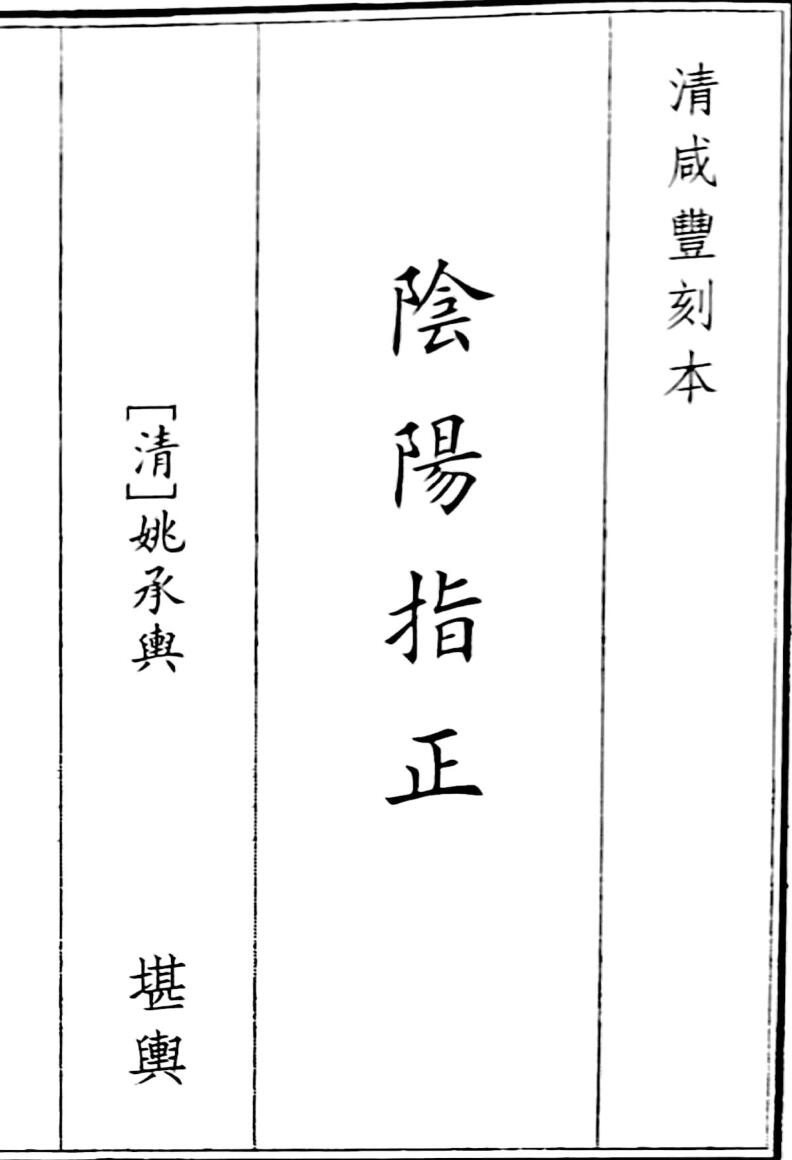 清咸豐刻本
陰陽指正
[清]姚承輿
堪輿